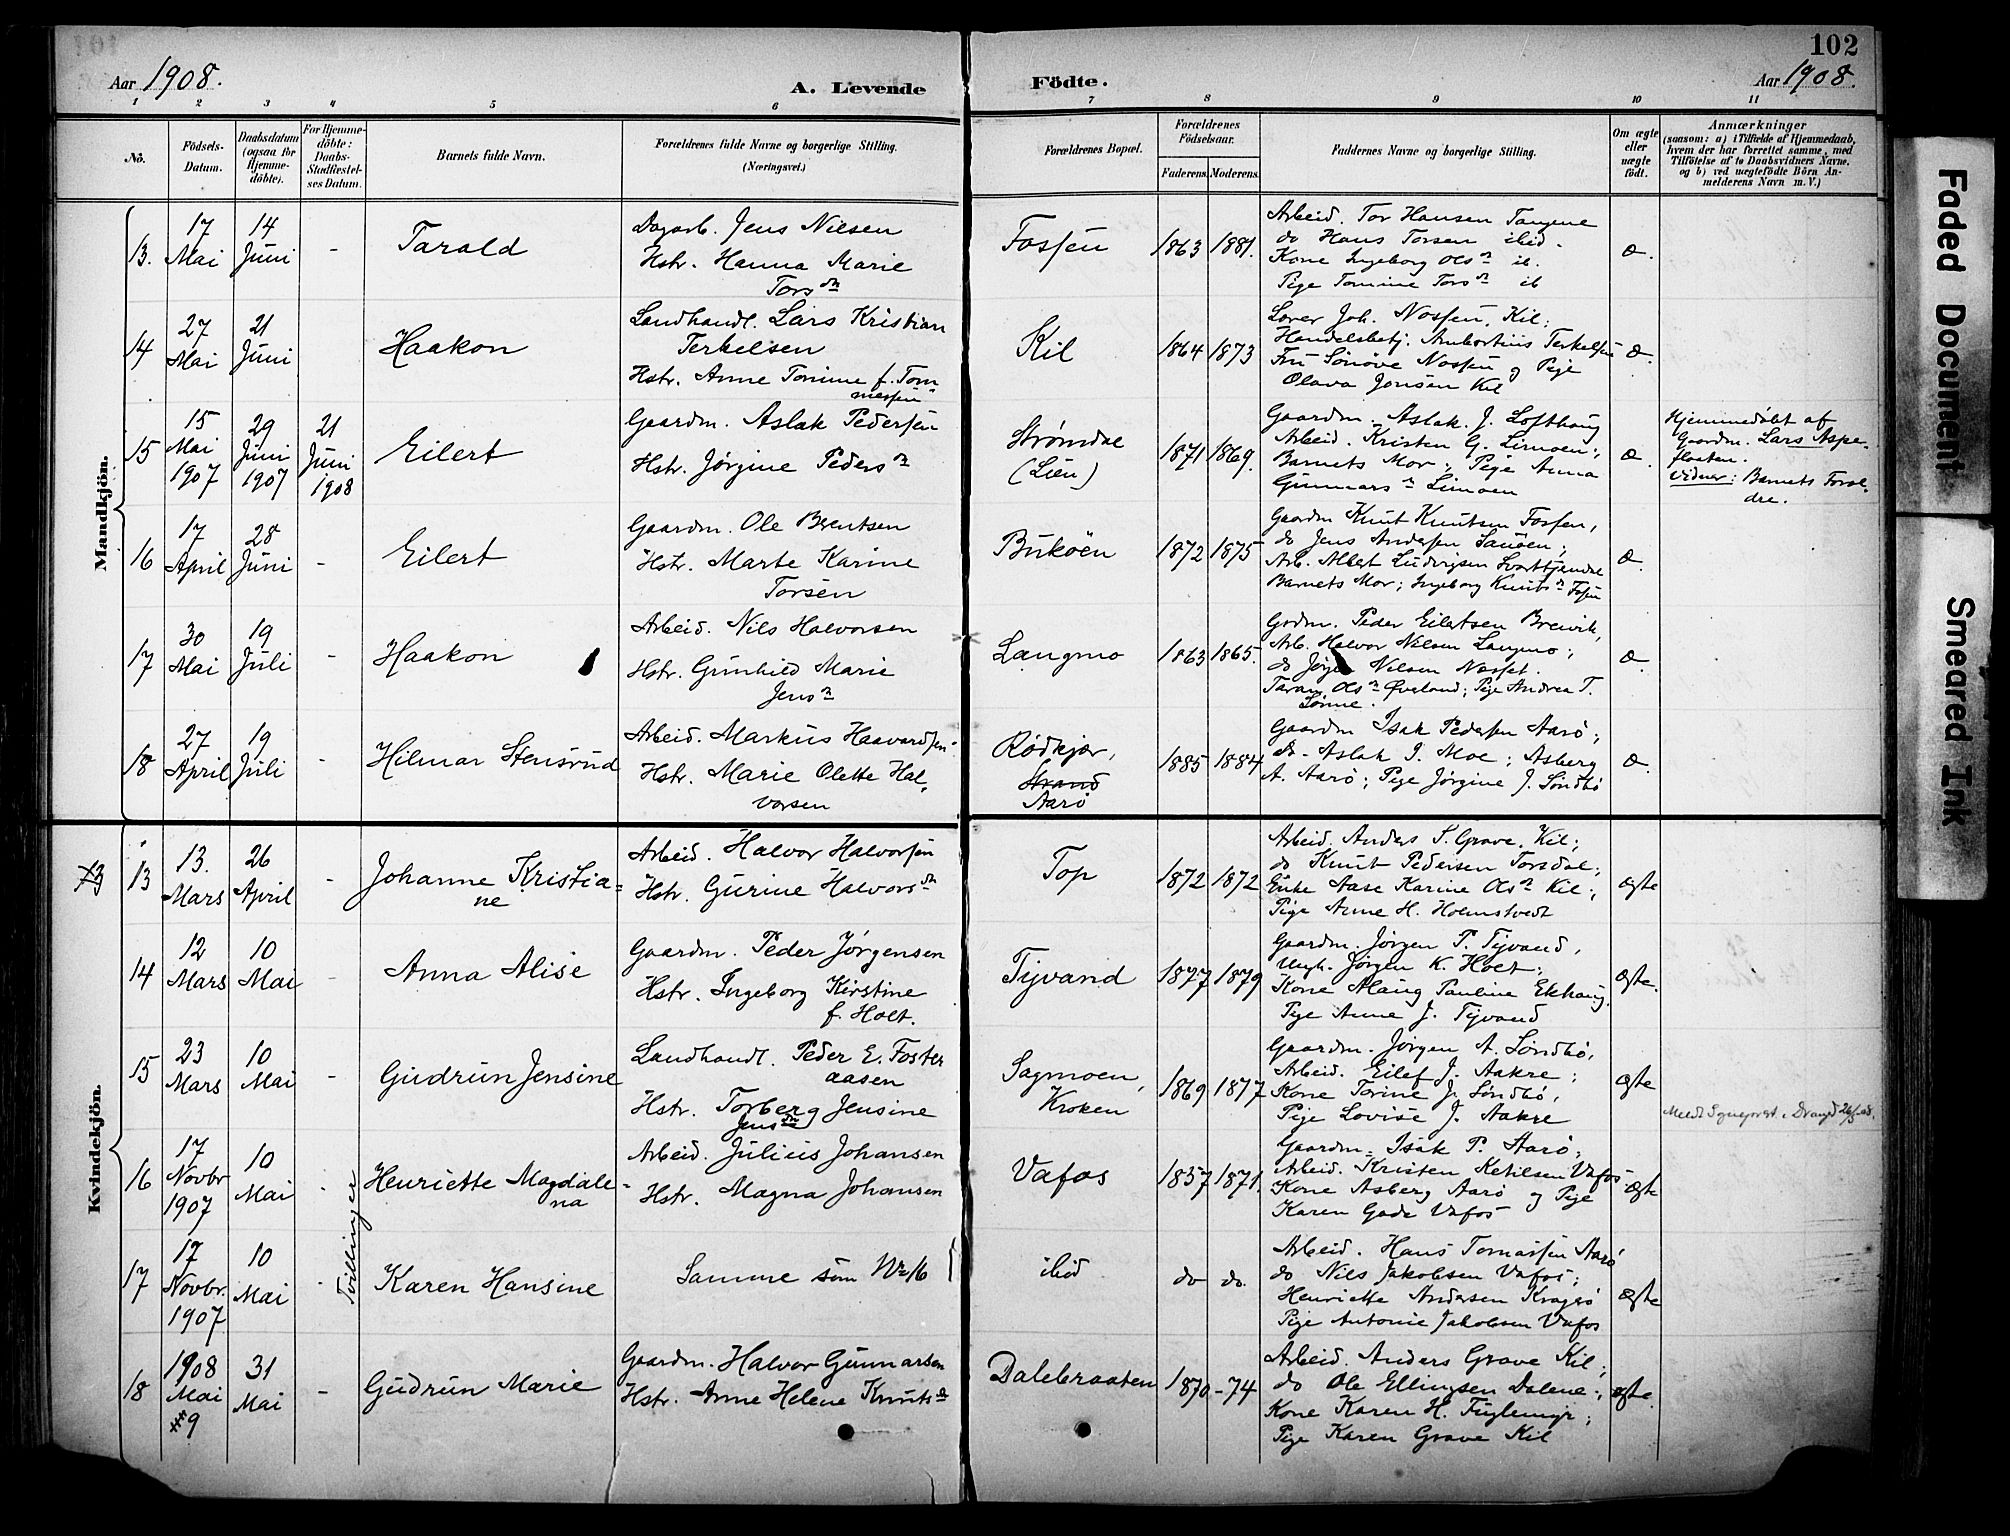 102
Aar 1908.
A. Levende
Födte.
Aar 1908.
1 2 3 4 5 6 7 8 9 10 11
No.
Födsels-
Datum.
Daabsdatum
(ogsaa for
Hjemme-
döbte).
For Hjemme-
döbte:
Daabs-
Stadfæstel-
ses Datum.
Barnets fulde Navn.
Forældrenes fulde Navne og borgerlige Stilling.
(Næringsvei.)
Forældrenes Bopæl.
Forældrenes
Födselsaar.
Faderens. Moderens.
Faddernes Navne og borgerlige Stilling.
Om ægte
eller
uægte
födt.
Anmærkninger
(saasom: a) i Tilfælde af Hjemmedaab,
hvem der har forrettet samme, med
Tilföielse af to Daabsvidners Navne.
og b) ved uægtefödte Börn An-
melderens Navn m. V.)
Mandkjön.
13.
17
Mai
14
Juni
-
Tarald
Dagarb. Jens Nilsen
Hstr. Hanna Marie
Torsdtr
Fossen
1863 1881.
Arbeid. Tor Hansen Tangene
do Hans Torsen ibid.
Kone Ingeborg Olsn ib.
Pige Tomine Torsn ib
æ.
14
27
Mai
21
Juni
Haakon
Landhandl. Lars Kristian
Terkelsen
Hstr. Anne Tomine f. Tom
messen
Kil
1864 1873
Lærer Joh. Nossen, Kil;
Handelsbetj. Ambortius Terkelsen
Fru Sønøve Nossen og Pige
Olava Jensen Kil
æ.
15
15
Mai
1907
29
Juni
1907
21
Juni
1908
Eilert
Gaardm. Aslak Pedersen
Hstr. Jørgine Pedersn
Strømdal
(Lien)
1871 1869.
Gaardm. Aslak J. Lofthaug
Arbeid. Kristen G. Limoen;
Barnets Mor; Pige Anna
Gunnarsn Limoen
æ.
Hjemmedøbt af
Gaardm. Lars Aspe-
flaaten.
Vidner: Barnets Foræl-
dre.
16
17
April
28
Juni
-
Eilert
Gaardm. Ole Berntsen
Hstr. Marte Karine
Torsen
Bukøen
1872 1875
Gaardm Knut Knutsen Fossen,
do Jens Andersen Sauøen;
Arb. Albert Ludvigsen Svarttjendal
Barnets Mor; Ingeborg Knutsn Fossen
æ.
17
30
Mai
19
Juli
-
Haakon
Arbeid. Nils Halvorsen
Hstr. Gunhild Marie
Jensn
Langmo
1863 1865.
Grdm. Peder Eilertsen Breivik,
Arb. Halvor Nilsen Langmo;
do Jørgen Nilsen Nosset.
Taran Olsn Øveland; Pige Andrea T.
Lønne.
æ.
18
27
April
19
Juli
-
Hilmar Stensrud
Arbeid. Markus Haavardsen
Hstr. Marie Olette Hal-
vorsen
Rødkjær,
Strand
Aarø
1885 1884
Gaardm Isak Pedersen Aarø;
do. Aslak I. Moe; Asberg
A. Aarø; Pige Jørgine J. Søndbø
æ.
Kvindekjön.
13
13
13.
Mars
26
April
-
Johanne Kristia-
ne
Arbeid. Halvor Halvorsen
Hstr. Gurine Halvorsdtr
Top
1872 1872
Arbeid. Anders S. Grave, Kil;
do Knut Pedersen Torsdal;
Enke Aase Karine Olsn Kil;
Pige Anne H. Holmstvedt
ægte
14
12
Mars
10
Mai
-
Anna Alise
Gaardm. Peder Jørgensen
Hstr. Ingeborg Kirstine
f. Holt.
Tyvand
1877 1879
Gaardm. Jørgen P. Tyvand,
Ungk. Jørgen K. Holt;
Kone Maug Pauline Ekhaug.
Pige Anne J. Tyvand
ægte.
15
23
Mars
10
Mai
-
Gudrun Jensine
Landhandl. Peder E. Foster
aasen
Hstr. Torberg Jensine
Jensdtr
Sagmoen,
Kroken
1869 1877
Gaardm. Jørgen A. Søndbø,
Arbeid. Eilef J. Aakre;
Kone Torine J. Søndbø,
Pige Lovise J. Aakre
ægte
Meldt Sogneprest i Drang
16
17
Novbr
1907
10
Mai
-
Tvillinger
Henriette Magdale-
na
Arbeid. Julius Johansen
Hstr. Magna Johansen
Vafos
1857 1871.
Gaardm. Isak P. Aarø;
Arbeid. Kristen Ketilsen Vafos
Kone Asberg Aarø og Pige
Karen Gade Vafos
ægte
17
17
Novbr.
1907
10
Mai
-
Karen Hansine
Samme som No 16
ibid
do do.
Arbeid. Hans Tomassen Aarø
do Nils Jakobsen Vafos;
Henriette Andersen Kragerø
Pige Antonie Jakobsen Vafos
ægte
18
1908
Mai
9
31
Mai
-
Gudrun Marie
Gaardm. Halvor Gunnarsen
Hstr. Anne Helene Knutsdtr
Dalebraaten
1870 -74
Arbeid. Anders Grave Kil;
do Ole Ellingsen Dalene;
Kone Karen H. Fuglemyr;
Pige Karen Grave Kil
ægte.
Faded Document
Smeared Ink